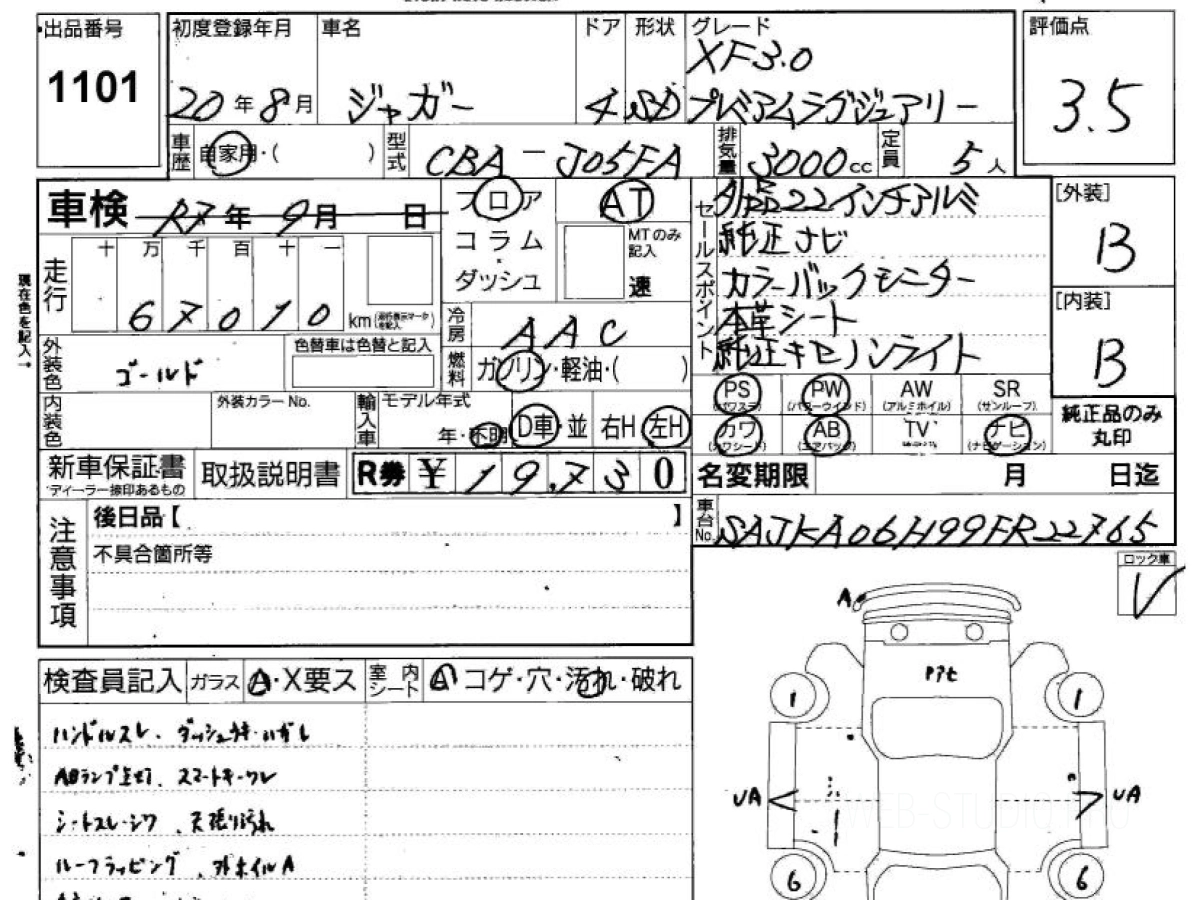 出品番号
1101
初度登録年月 車名 ドア 形状 グレード
20年8月 ジャガー 4 SD XF3.0
プレミアムラグジュアリー
評価点
3.5
車歴 自家用・( ) 型式 CBA-J05FA 排気量 3000cc 定員 5人
車検 R7年9月 日
フロア AT
コラム MTのみ記入
ダッシュ 速
セールスポイント
外品22インチアルミ
純正ナビ
カラーバックモニター
本革シート
純正キセノンライト
[外装]
B
[内装]
B
現在色を記入→
走行 十 万 千 百 十 一
67010 km
冷房 AAC
外装色 ゴールド 色替車は色替と記入
燃料 ガソリン・軽油・( )
内装色 外装カラーNo. 輸入車 モデル年式
年・不明 D車・並 右H 左H
PS (パワステ) PW (パワーウインド) AW (アルミホイル) SR (サンルーフ)
カワ (カワシート) AB (エアバッグ) TV ナビ (ナビゲーション)
純正品のみ
丸印
新車保証書 取扱説明書 R券 ¥19,730
ディーラー捺印あるもの
名変期限 月 日迄
注意事項
後日品【 】
不具合箇所等
車台No. SAJKA06H99FR22765
ロック車
レ
検査員記入 ガラス A・X要ス 室内シート A コゲ・穴・汚れ・破れ
ハンドルスレ、ダッシュウキ・ハガレ
ABランプ点灯、スマートキーワレ
シートスレ・シワ、天張り汚れ
ルーフラッピング、外ホイルA
A
1 1
UA UA
6 6
WEB-STUDIO PRO